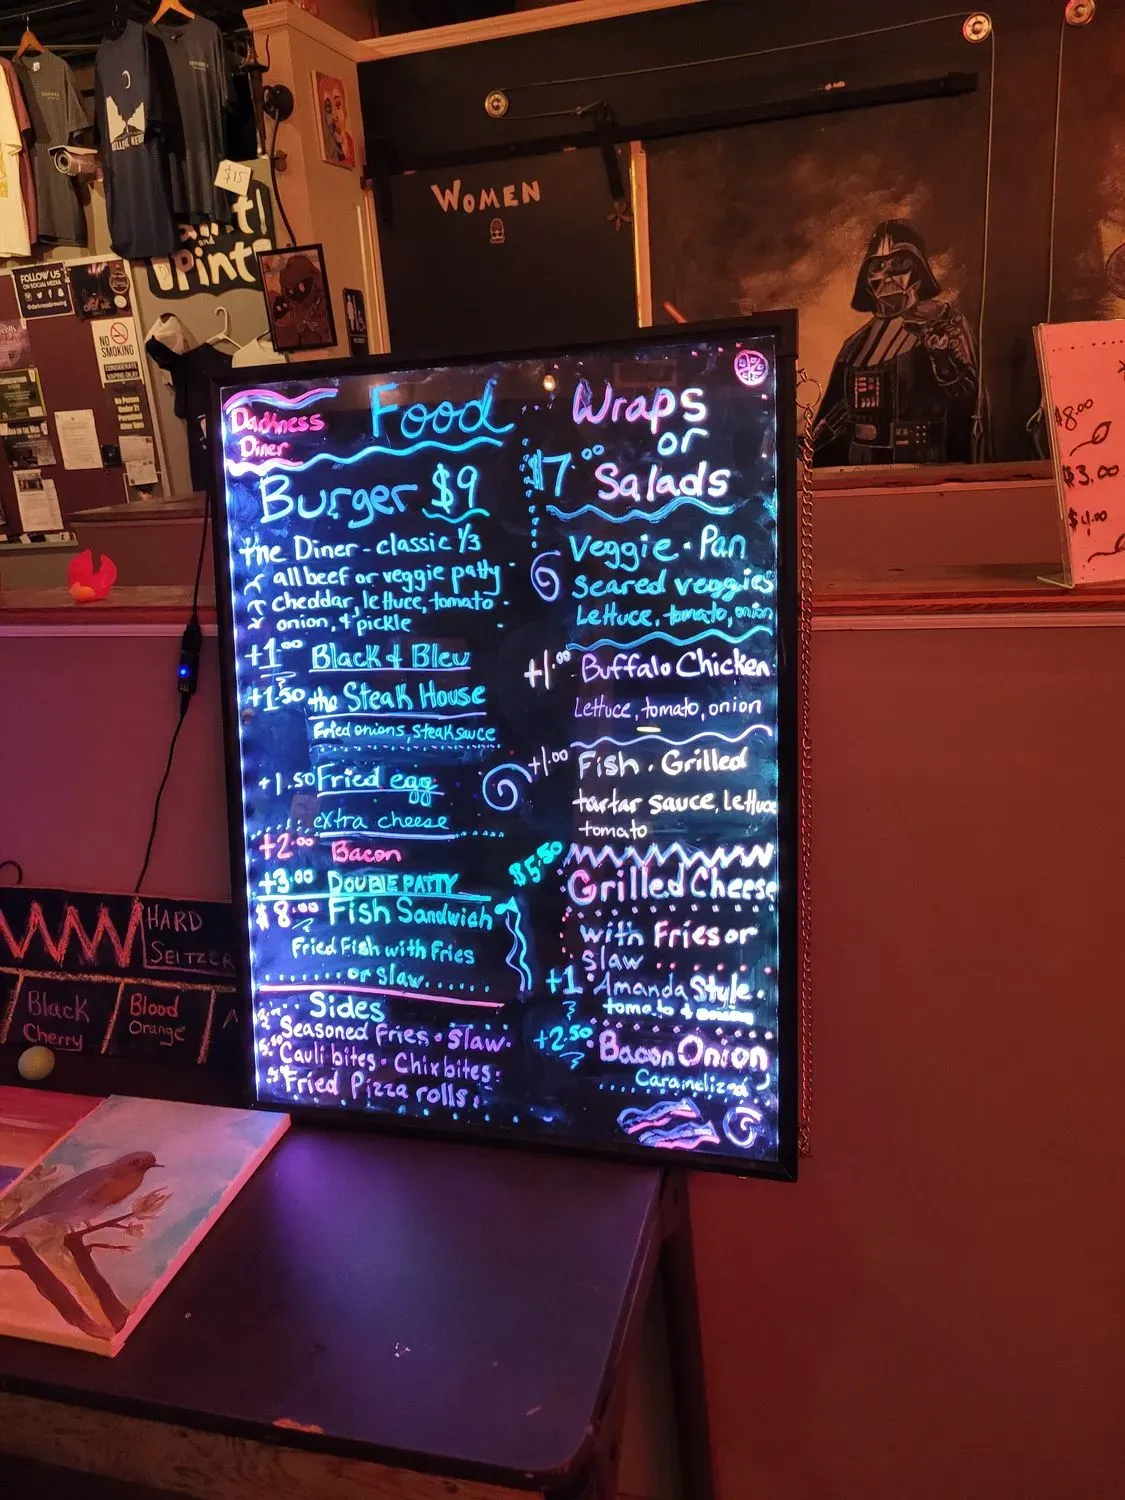 $15
and
Pint
BELLEVUE
FOLLOW US
ON SOCIAL MEDIA
@darknessbrewing
NO
SMOKING
CONSIDERATE
VAPING OKAY
WOMEN
Darkness
Diner
Food
Burger $9
the Diner - classic 1/3
all beef or veggie patty
cheddar, lettuce, tomato
onion, & pickle
+1.00 Black & Bleu
+1.50 the Steak House
Fried onions, steak sauce
+1.50 Fried egg
extra cheese
+2.00 Bacon
+3.00 DOUBLE PATTY
$8.00 Fish Sandwich
Fried Fish with Fries
or Slaw
Sides
Seasoned Fries • Slaw
Cauli bites • Chix bites
Fried Pizza rolls
Wraps
or
$7.00 Salads
Veggie • Pan
Seared veggies
Lettuce, tomato, onion
+1.00 Buffalo Chicken
Lettuce, tomato, onion
+1.00 Fish • Grilled
tartar sauce, lettuce
tomato
$5.50
Grilled Cheese
with Fries or
slaw
+1 Amanda Style
tomato & onion
+2.50 Bacon Onion
Caramelized
HARD
SELTZER
Black
Cherry
Blood
Orange
$8.00
$3.00
$4.00